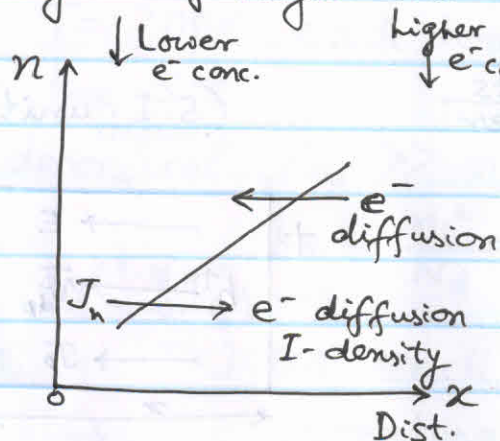 Lower
e⁻ conc.
higher
e⁻ c
n
e⁻
diffusion
Jₙ
e⁻ diffusion
I-density
o
x
Dist.